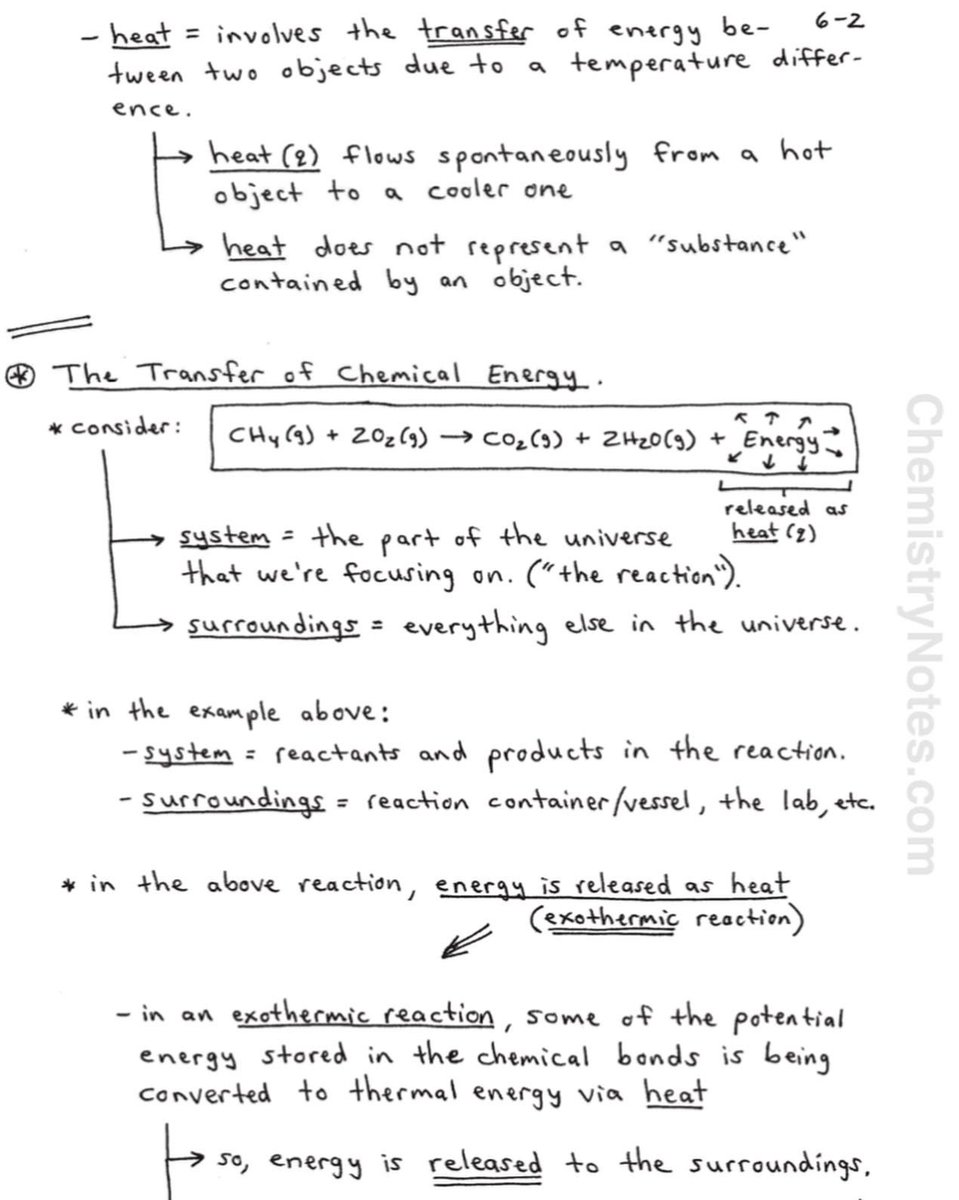 6-2
- heat = involves the transfer of energy be-
tween two objects due to a temperature differ-
ence.
→ heat (q) flows spontaneously from a hot
object to a cooler one
→ heat does not represent a "substance"
contained by an object.
⊛ The Transfer of Chemical Energy.
* consider: CH₄(g) + 2O₂(g) → CO₂(g) + 2H₂O(g) + Energy
released as
heat (q)
→ system = the part of the universe
that we're focusing on. ("the reaction").
→ surroundings = everything else in the universe.
* in the example above:
- system = reactants and products in the reaction.
- surroundings = reaction container/vessel, the lab, etc.
* in the above reaction, energy is released as heat
(exothermic reaction)
- in an exothermic reaction, some of the potential
energy stored in the chemical bonds is being
converted to thermal energy via heat
→ so, energy is released to the surroundings.
ChemistryNotes.com